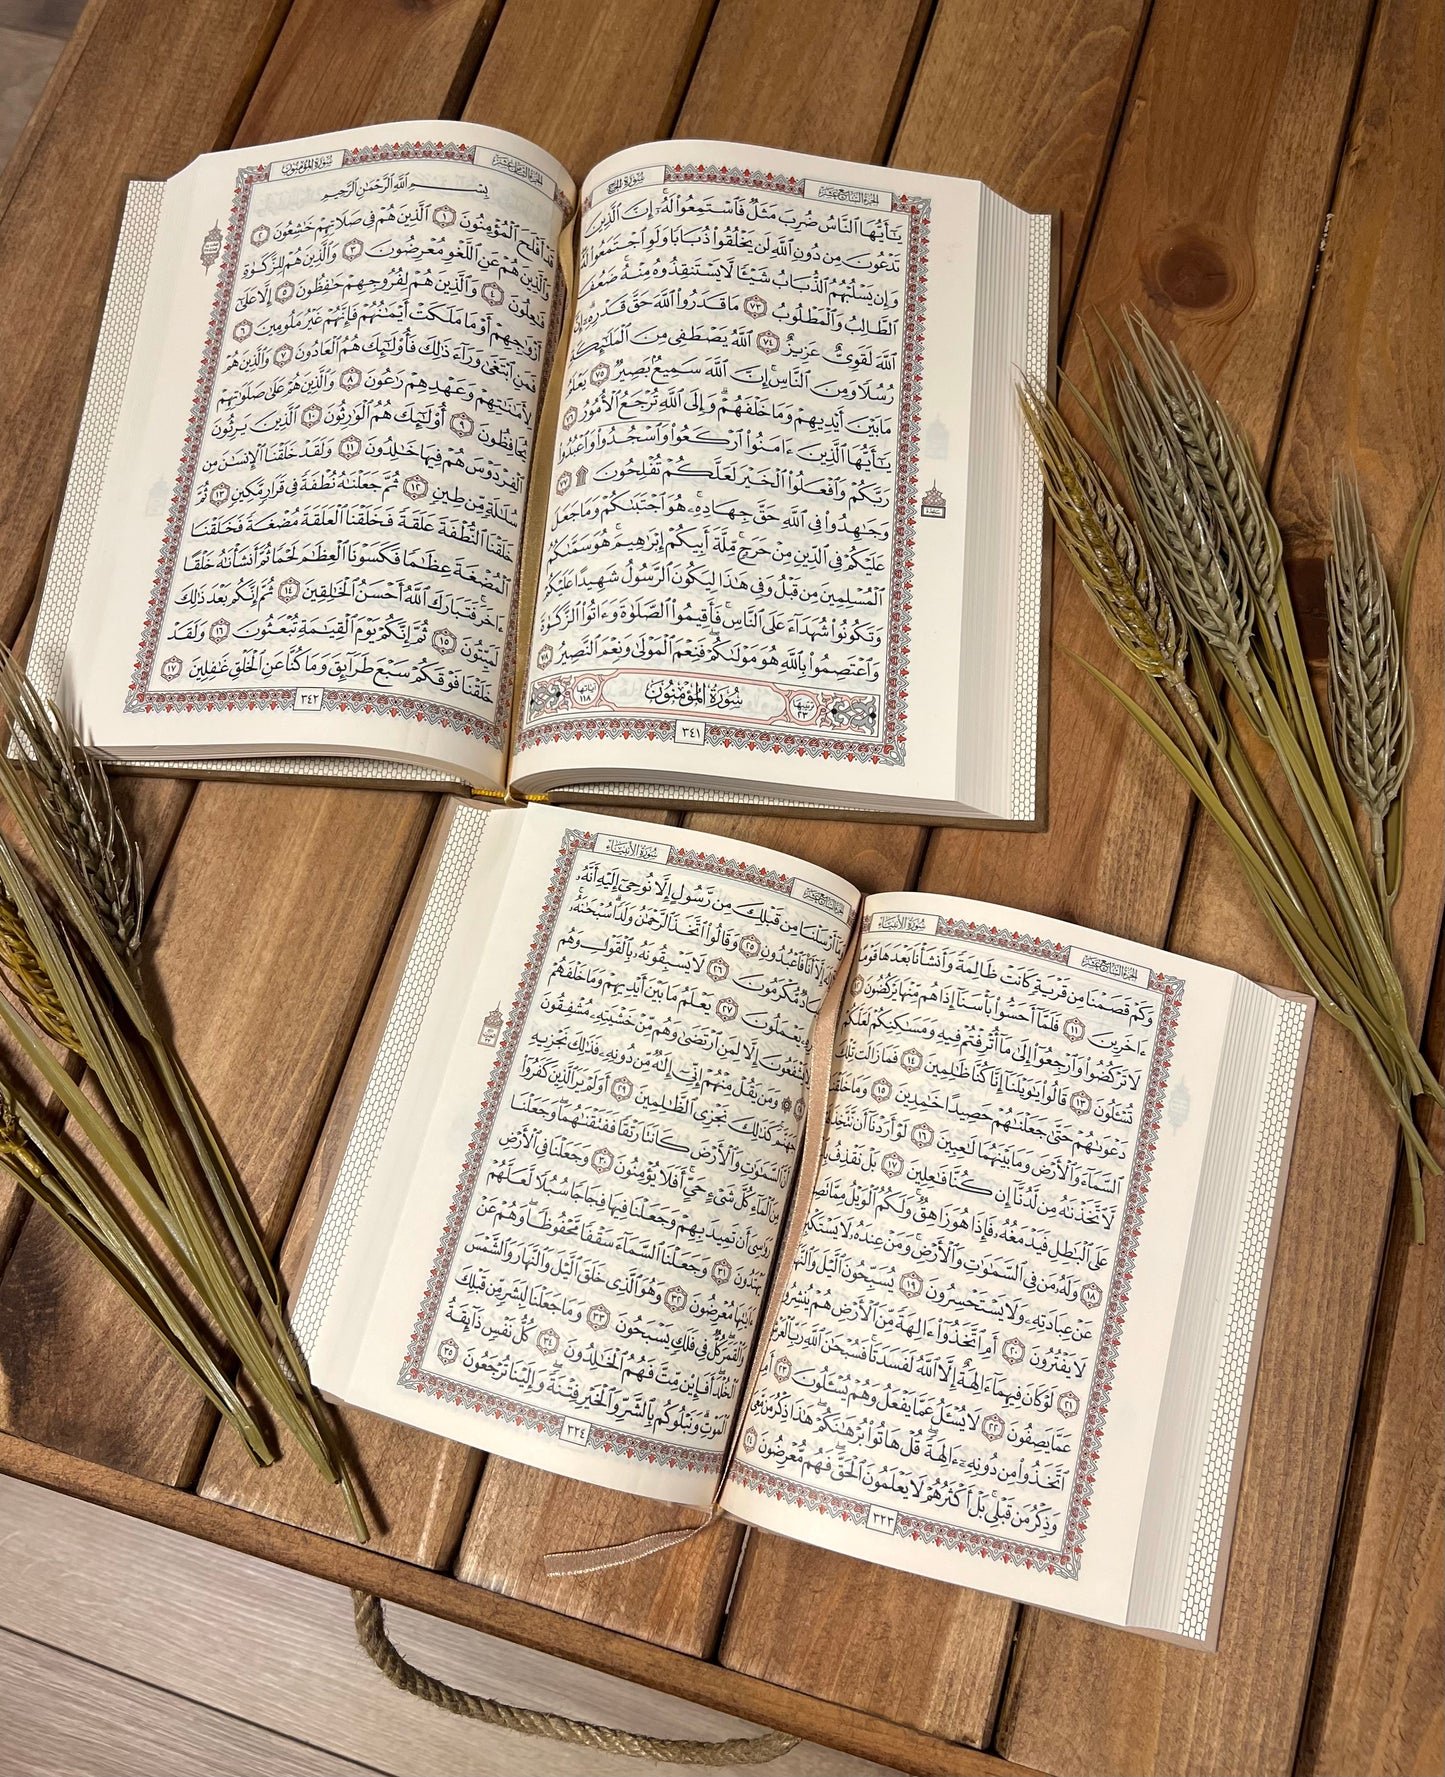 الجُزْءُ السَّابِعَ عَشَرَ سُورَةُ الحَجِّ
يَٰٓأَيُّهَا ٱلنَّاسُ ضُرِبَ مَثَلٌ فَٱسْتَمِعُوا۟ لَهُۥٓ ۚ إِنَّ ٱلَّذِينَ
تَدْعُونَ مِن دُونِ ٱللَّهِ لَن يَخْلُقُوا۟ ذُبَابًا وَلَوِ ٱجْتَمَعُوا۟
وَإِن يَسْلُبْهُمُ ٱلذُّبَابُ شَيْـًٔا لَّا يَسْتَنقِذُوهُ مِنْهُ ۚ ضَعُفَ
ٱلطَّالِبُ وَٱلْمَطْلُوبُ ٧٣ مَا قَدَرُوا۟ ٱللَّهَ حَقَّ قَدْرِهِۦٓ ۗ إِنَّ
ٱللَّهَ لَقَوِىٌّ عَزِيزٌ ٧٤ ٱللَّهُ يَصْطَفِى مِنَ ٱلْمَلَٰٓئِكَةِ
رُسُلًا وَمِنَ ٱلنَّاسِ ۚ إِنَّ ٱللَّهَ سَمِيعٌۢ بَصِيرٌ ٧٥ يَعْلَمُ
مَا بَيْنَ أَيْدِيهِمْ وَمَا خَلْفَهُمْ ۗ وَإِلَى ٱللَّهِ تُرْجَعُ ٱلْأُمُورُ ٧٦
يَٰٓأَيُّهَا ٱلَّذِينَ ءَامَنُوا۟ ٱرْكَعُوا۟ وَٱسْجُدُوا۟ وَٱعْبُدُوا۟
رَبَّكُمْ وَٱفْعَلُوا۟ ٱلْخَيْرَ لَعَلَّكُمْ تُفْلِحُونَ ۩ ٧٧
وَجَٰهِدُوا۟ فِى ٱللَّهِ حَقَّ جِهَادِهِۦ ۚ هُوَ ٱجْتَبَىٰكُمْ وَمَا جَعَلَ
عَلَيْكُمْ فِى ٱلدِّينِ مِنْ حَرَجٍ ۚ مِّلَّةَ أَبِيكُمْ إِبْرَٰهِيمَ ۚ هُوَ سَمَّىٰكُمُ
ٱلْمُسْلِمِينَ مِن قَبْلُ وَفِى هَٰذَا لِيَكُونَ ٱلرَّسُولُ شَهِيدًا عَلَيْكُمْ
وَتَكُونُوا۟ شُهَدَآءَ عَلَى ٱلنَّاسِ ۚ فَأَقِيمُوا۟ ٱلصَّلَوٰةَ وَءَاتُوا۟ ٱلزَّكَوٰةَ
وَٱعْتَصِمُوا۟ بِٱللَّهِ هُوَ مَوْلَىٰكُمْ ۖ فَنِعْمَ ٱلْمَوْلَىٰ وَنِعْمَ ٱلنَّصِيرُ ٧٨
ترتيبها ٢٣ سُورَةُ المُؤْمِنُونَ آياتها ١١٨
٣٤١
سَجْدَة
الجُزْءُ الثَّامِنَ عَشَرَ سُورَةُ المُؤْمِنُونَ
بِسْمِ ٱللَّهِ ٱلرَّحْمَٰنِ ٱلرَّحِيمِ
قَدْ أَفْلَحَ ٱلْمُؤْمِنُونَ ١ ٱلَّذِينَ هُمْ فِى صَلَاتِهِمْ خَٰشِعُونَ ٢
وَٱلَّذِينَ هُمْ عَنِ ٱللَّغْوِ مُعْرِضُونَ ٣ وَٱلَّذِينَ هُمْ لِلزَّكَوٰةِ
فَٰعِلُونَ ٤ وَٱلَّذِينَ هُمْ لِفُرُوجِهِمْ حَٰفِظُونَ ٥ إِلَّا عَلَىٰٓ
أَزْوَٰجِهِمْ أَوْ مَا مَلَكَتْ أَيْمَٰنُهُمْ فَإِنَّهُمْ غَيْرُ مَلُومِينَ ٦
فَمَنِ ٱبْتَغَىٰ وَرَآءَ ذَٰلِكَ فَأُو۟لَٰٓئِكَ هُمُ ٱلْعَادُونَ ٧ وَٱلَّذِينَ هُمْ
لِأَمَٰنَٰتِهِمْ وَعَهْدِهِمْ رَٰعُونَ ٨ وَٱلَّذِينَ هُمْ عَلَىٰ صَلَوَٰتِهِمْ
يُحَافِظُونَ ٩ أُو۟لَٰٓئِكَ هُمُ ٱلْوَٰرِثُونَ ١٠ ٱلَّذِينَ يَرِثُونَ
ٱلْفِرْدَوْسَ هُمْ فِيهَا خَٰلِدُونَ ١١ وَلَقَدْ خَلَقْنَا ٱلْإِنسَٰنَ مِن
سُلَٰلَةٍ مِّن طِينٍ ١٢ ثُمَّ جَعَلْنَٰهُ نُطْفَةً فِى قَرَارٍ مَّكِينٍ ١٣ ثُمَّ
خَلَقْنَا ٱلنُّطْفَةَ عَلَقَةً فَخَلَقْنَا ٱلْعَلَقَةَ مُضْغَةً فَخَلَقْنَا
ٱلْمُضْغَةَ عِظَٰمًا فَكَسَوْنَا ٱلْعِظَٰمَ لَحْمًا ثُمَّ أَنشَأْنَٰهُ خَلْقًا
ءَاخَرَ ۚ فَتَبَارَكَ ٱللَّهُ أَحْسَنُ ٱلْخَٰلِقِينَ ١٤ ثُمَّ إِنَّكُم بَعْدَ ذَٰلِكَ
لَمَيِّتُونَ ١٥ ثُمَّ إِنَّكُمْ يَوْمَ ٱلْقِيَٰمَةِ تُبْعَثُونَ ١٦ وَلَقَدْ
خَلَقْنَا فَوْقَكُمْ سَبْعَ طَرَآئِقَ وَمَا كُنَّا عَنِ ٱلْخَلْقِ غَٰفِلِينَ ١٧
٣٤٢
الجُزْءُ السَّابِعَ عَشَرَ سُورَةُ الأَنبِيَاءِ
وَكَمْ قَصَمْنَا مِن قَرْيَةٍ كَانَتْ ظَالِمَةً وَأَنشَأْنَا بَعْدَهَا قَوْمًا
ءَاخَرِينَ ١١ فَلَمَّآ أَحَسُّوا۟ بَأْسَنَآ إِذَا هُم مِّنْهَا يَرْكُضُونَ
لَا تَرْكُضُوا۟ وَٱرْجِعُوٓا۟ إِلَىٰ مَآ أُتْرِفْتُمْ فِيهِ وَمَسَٰكِنِكُمْ لَعَلَّكُمْ
تُسْـَٔلُونَ ١٣ قَالُوا۟ يَٰوَيْلَنَآ إِنَّا كُنَّا ظَٰلِمِينَ ١٤ فَمَا زَالَت تِّلْكَ
دَعْوَىٰهُمْ حَتَّىٰ جَعَلْنَٰهُمْ حَصِيدًا خَٰمِدِينَ ١٥ وَمَا خَلَقْنَا
ٱلسَّمَآءَ وَٱلْأَرْضَ وَمَا بَيْنَهُمَا لَٰعِبِينَ ١٦ لَوْ أَرَدْنَآ أَن نَّتَّخِذَ
لَّٱتَّخَذْنَٰهُ مِن لَّدُنَّآ إِن كُنَّا فَٰعِلِينَ ١٧ بَلْ نَقْذِفُ
عَلَى ٱلْبَٰطِلِ فَيَدْمَغُهُۥ فَإِذَا هُوَ زَاهِقٌ ۚ وَلَكُمُ ٱلْوَيْلُ مِمَّا
١٨ وَلَهُۥ مَن فِى ٱلسَّمَٰوَٰتِ وَٱلْأَرْضِ ۚ وَمَنْ عِندَهُۥ لَا يَسْتَكْبِرُونَ
عَنْ عِبَادَتِهِۦ وَلَا يَسْتَحْسِرُونَ ١٩ يُسَبِّحُونَ ٱلَّيْلَ وَٱلنَّهَارَ
لَا يَفْتُرُونَ ٢٠ أَمِ ٱتَّخَذُوٓا۟ ءَالِهَةً مِّنَ ٱلْأَرْضِ هُمْ يُنشِرُونَ
٢١ لَوْ كَانَ فِيهِمَآ ءَالِهَةٌ إِلَّا ٱللَّهُ لَفَسَدَتَا ۚ فَسُبْحَٰنَ ٱللَّهِ رَبِّ ٱلْعَرْشِ
عَمَّا يَصِفُونَ ٢٢ لَا يُسْـَٔلُ عَمَّا يَفْعَلُ وَهُمْ يُسْـَٔلُونَ ٢٣ أَمِ
ٱتَّخَذُوا۟ مِن دُونِهِۦٓ ءَالِهَةً ۖ قُلْ هَاتُوا۟ بُرْهَٰنَكُمْ ۖ هَٰذَا ذِكْرُ مَن مَّعِىَ
وَذِكْرُ مَن قَبْلِى ۗ بَلْ أَكْثَرُهُمْ لَا يَعْلَمُونَ ٱلْحَقَّ ۖ فَهُم مُّعْرِضُونَ ٢٤
٣٢٣
الجُزْءُ السَّابِعَ عَشَرَ سُورَةُ الأَنبِيَاءِ
وَمَآ أَرْسَلْنَا مِن قَبْلِكَ مِن رَّسُولٍ إِلَّا نُوحِىٓ إِلَيْهِ أَنَّهُۥ
إِلَٰهَ إِلَّآ أَنَا۠ فَٱعْبُدُونِ ٢٥ وَقَالُوا۟ ٱتَّخَذَ ٱلرَّحْمَٰنُ وَلَدًا ۗ سُبْحَٰنَهُۥ ۚ
عِبَادٌ مُّكْرَمُونَ ٢٦ لَا يَسْبِقُونَهُۥ بِٱلْقَوْلِ وَهُم
يَعْمَلُونَ ٢٧ يَعْلَمُ مَا بَيْنَ أَيْدِيهِمْ وَمَا خَلْفَهُمْ
يَشْفَعُونَ إِلَّا لِمَنِ ٱرْتَضَىٰ وَهُم مِّنْ خَشْيَتِهِۦ مُشْفِقُونَ
۞ وَمَن يَقُلْ مِنْهُمْ إِنِّىٓ إِلَٰهٌ مِّن دُونِهِۦ فَذَٰلِكَ نَجْزِيهِ
جَهَنَّمَ ۚ كَذَٰلِكَ نَجْزِى ٱلظَّٰلِمِينَ ٢٩ أَوَلَمْ يَرَ ٱلَّذِينَ كَفَرُوٓا۟
أَنَّ ٱلسَّمَٰوَٰتِ وَٱلْأَرْضَ كَانَتَا رَتْقًا فَفَتَقْنَٰهُمَا ۖ وَجَعَلْنَا
مِنَ ٱلْمَآءِ كُلَّ شَىْءٍ حَىٍّ ۖ أَفَلَا يُؤْمِنُونَ ٣٠ وَجَعَلْنَا فِى ٱلْأَرْضِ
رَوَٰسِىَ أَن تَمِيدَ بِهِمْ وَجَعَلْنَا فِيهَا فِجَاجًا سُبُلًا لَّعَلَّهُمْ
يَهْتَدُونَ ٣١ وَجَعَلْنَا ٱلسَّمَآءَ سَقْفًا مَّحْفُوظًا ۖ وَهُمْ عَنْ
ءَايَٰتِهَا مُعْرِضُونَ ٣٢ وَهُوَ ٱلَّذِى خَلَقَ ٱلَّيْلَ وَٱلنَّهَارَ وَٱلشَّمْسَ
وَٱلْقَمَرَ ۖ كُلٌّ فِى فَلَكٍ يَسْبَحُونَ ٣٣ وَمَا جَعَلْنَا لِبَشَرٍ مِّن قَبْلِكَ
ٱلْخُلْدَ ۖ أَفَإِي۟ن مِّتَّ فَهُمُ ٱلْخَٰلِدُونَ ٣٤ كُلُّ نَفْسٍ ذَآئِقَةُ
ٱلْمَوْتِ ۗ وَنَبْلُوكُم بِٱلشَّرِّ وَٱلْخَيْرِ فِتْنَةً ۖ وَإِلَيْنَا تُرْجَعُونَ ٣٥
٣٢٤